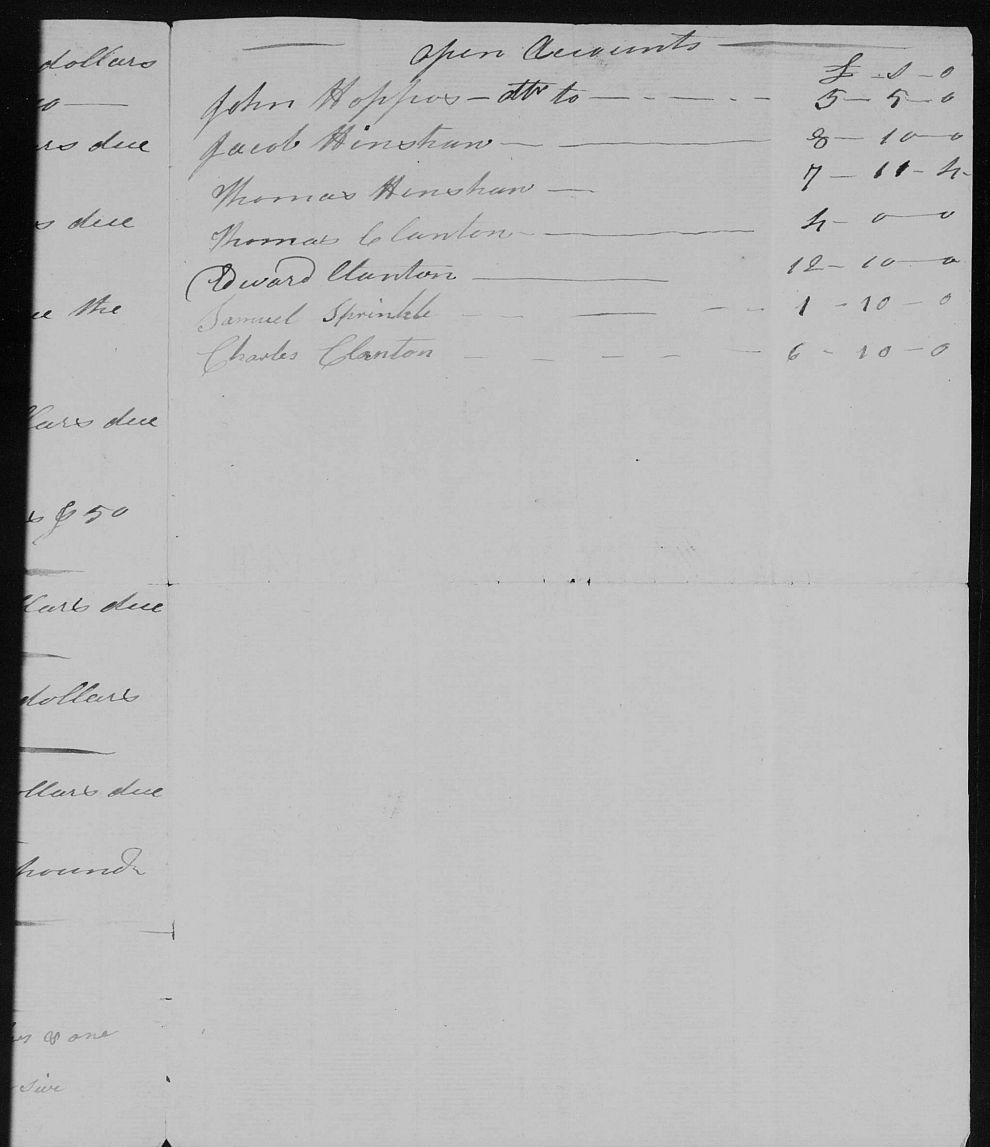 dollars
due
due
the
due
$ 50
due
dollars
due
pound
& one
open Accounts
£ - s - o
John Hoppos - dtr to - - - - 5 - 5 - 0
Jacob Hinshaw - 8 - 10 - 0
Thomas Hinshaw - 7 - 11 - 4 -
Thomas Clanton - 4 - 0 - 0
Edward Clanton 12 - 10 - 0
Samuel Sprinkle - - - - - 1 - 10 - 0
Charles Clanton - - - - - - 6 - 10 - 0